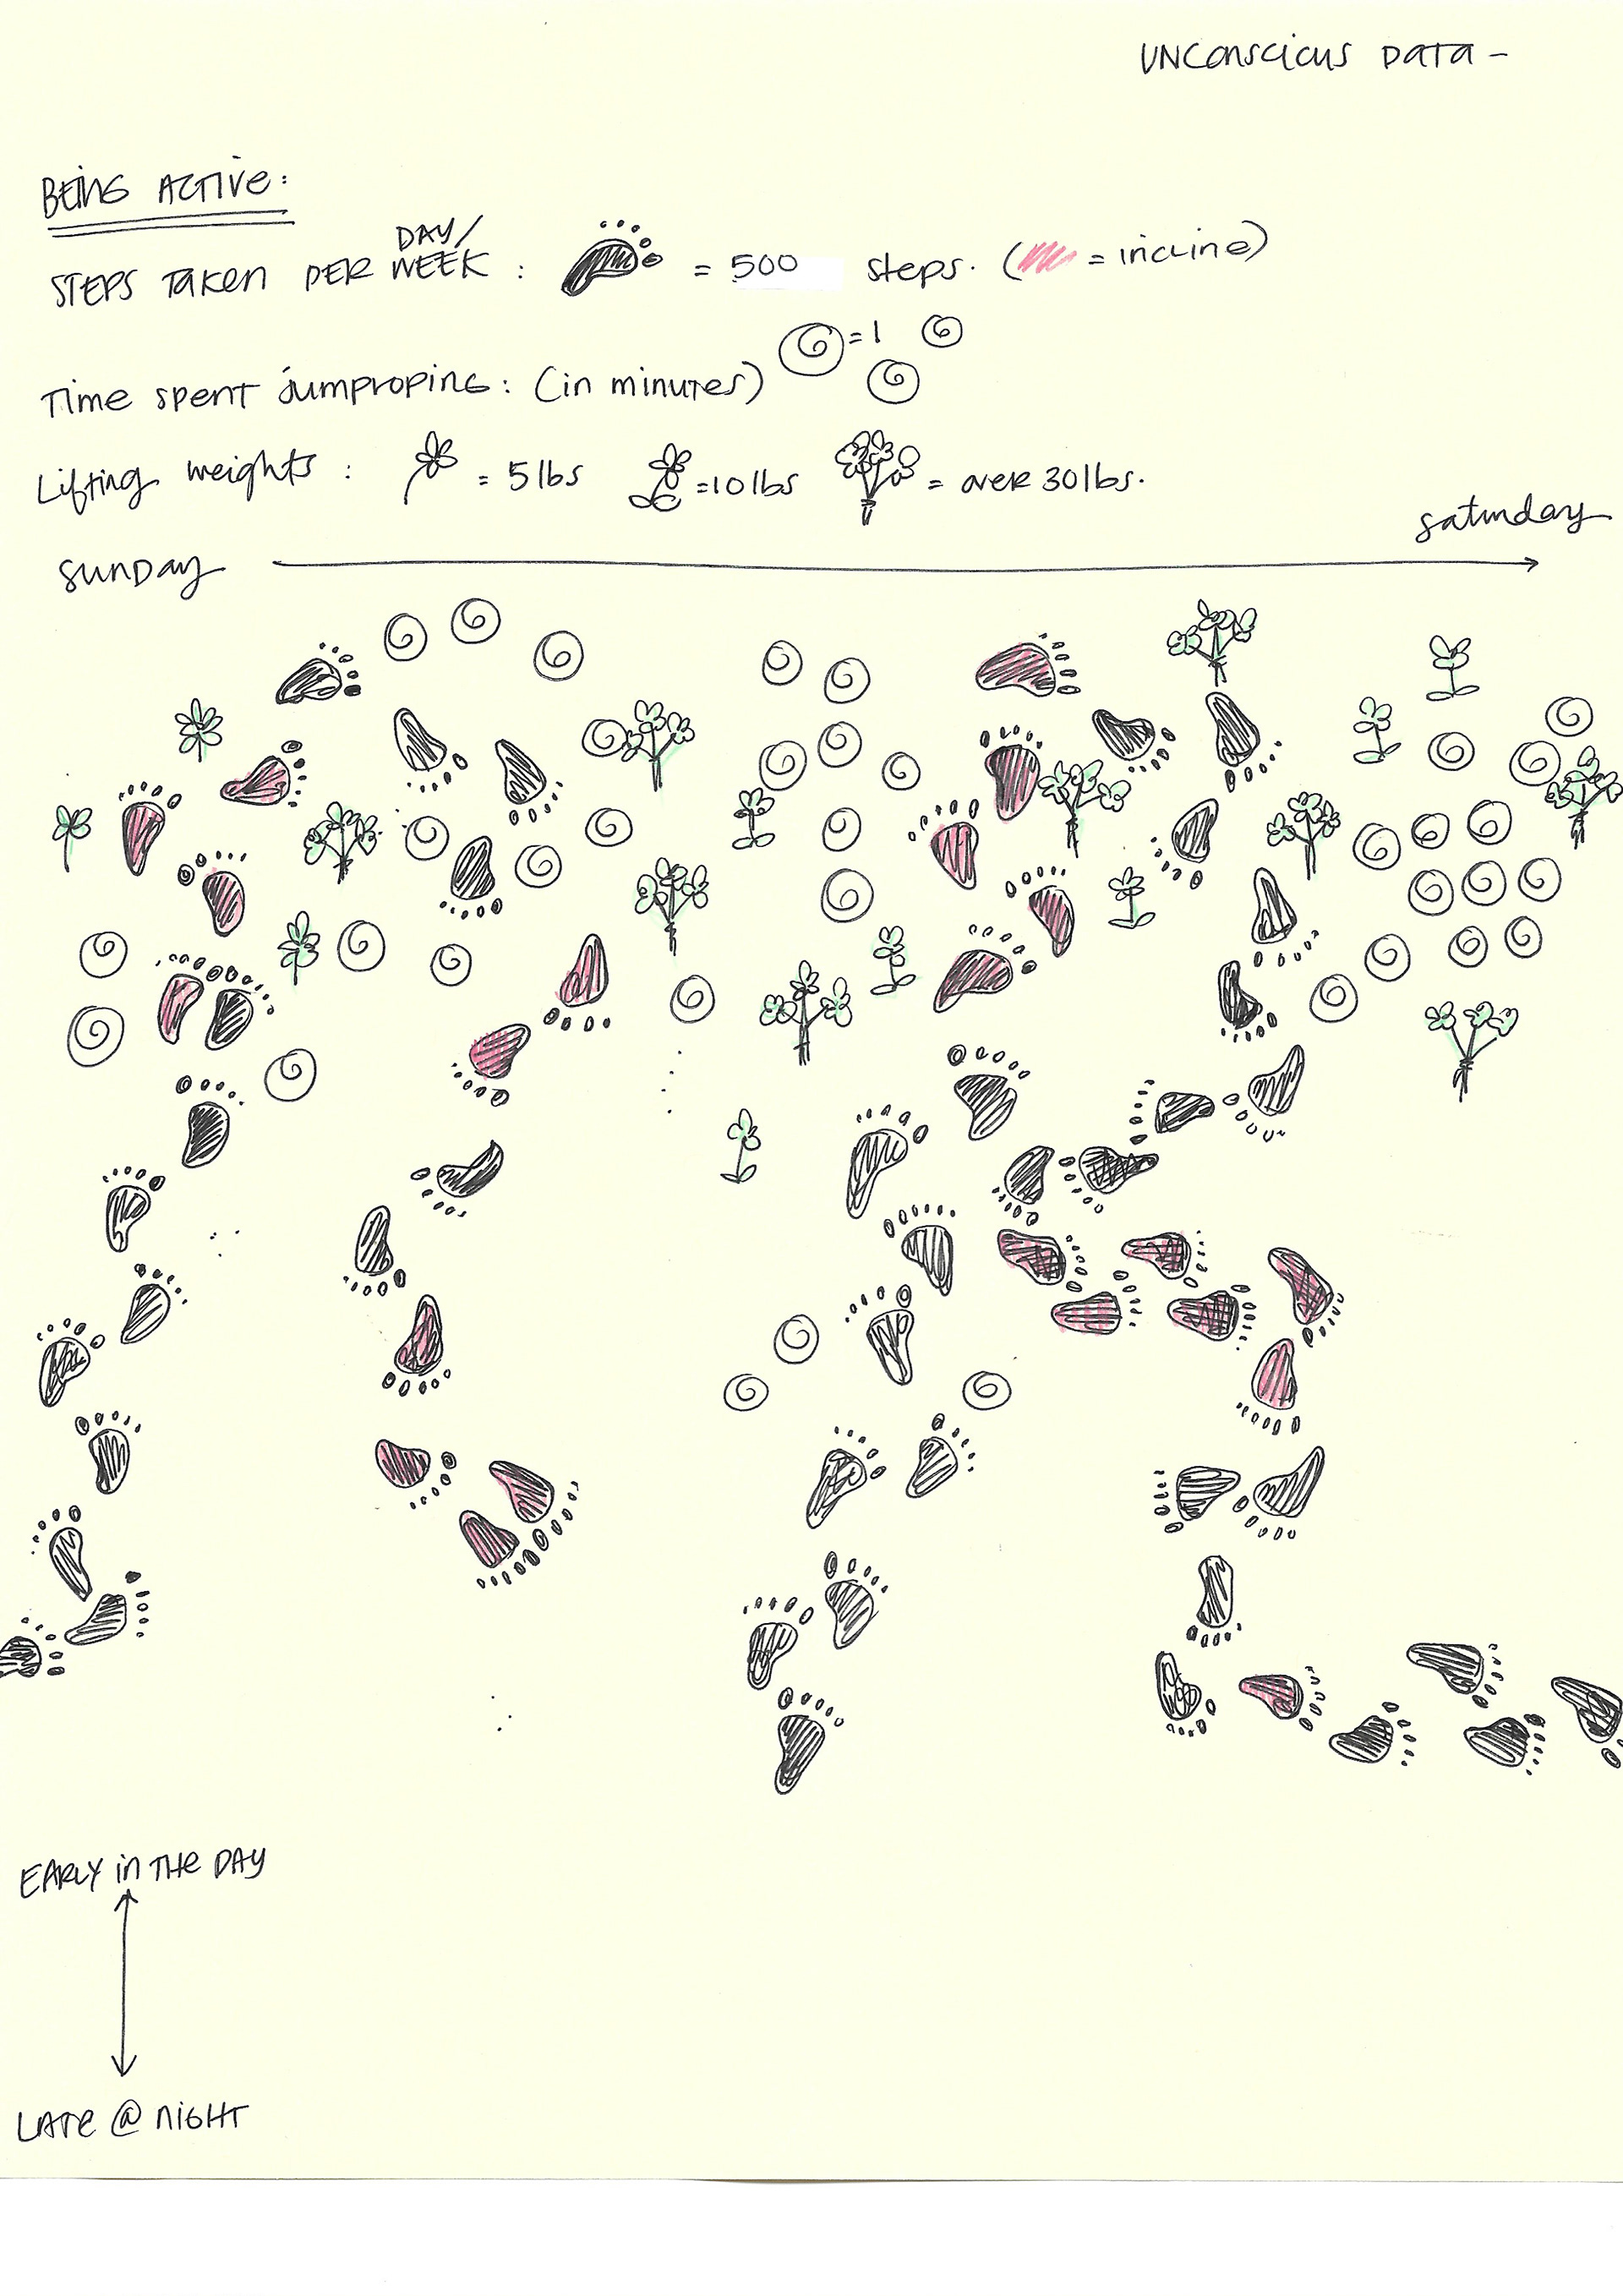 UNCONSCIOUS DATA -
BEING ACTIVE:
DAY/
STEPS TAKEN PER WEEK : = 500 steps. ( = incline)
Time spent jumproping: (in minutes) = 1
Lifting weights : = 5 lbs = 10 lbs = over 30 lbs.
saturday
SUNDAY
EARLY in THE DAY
LATE @ NIGHT